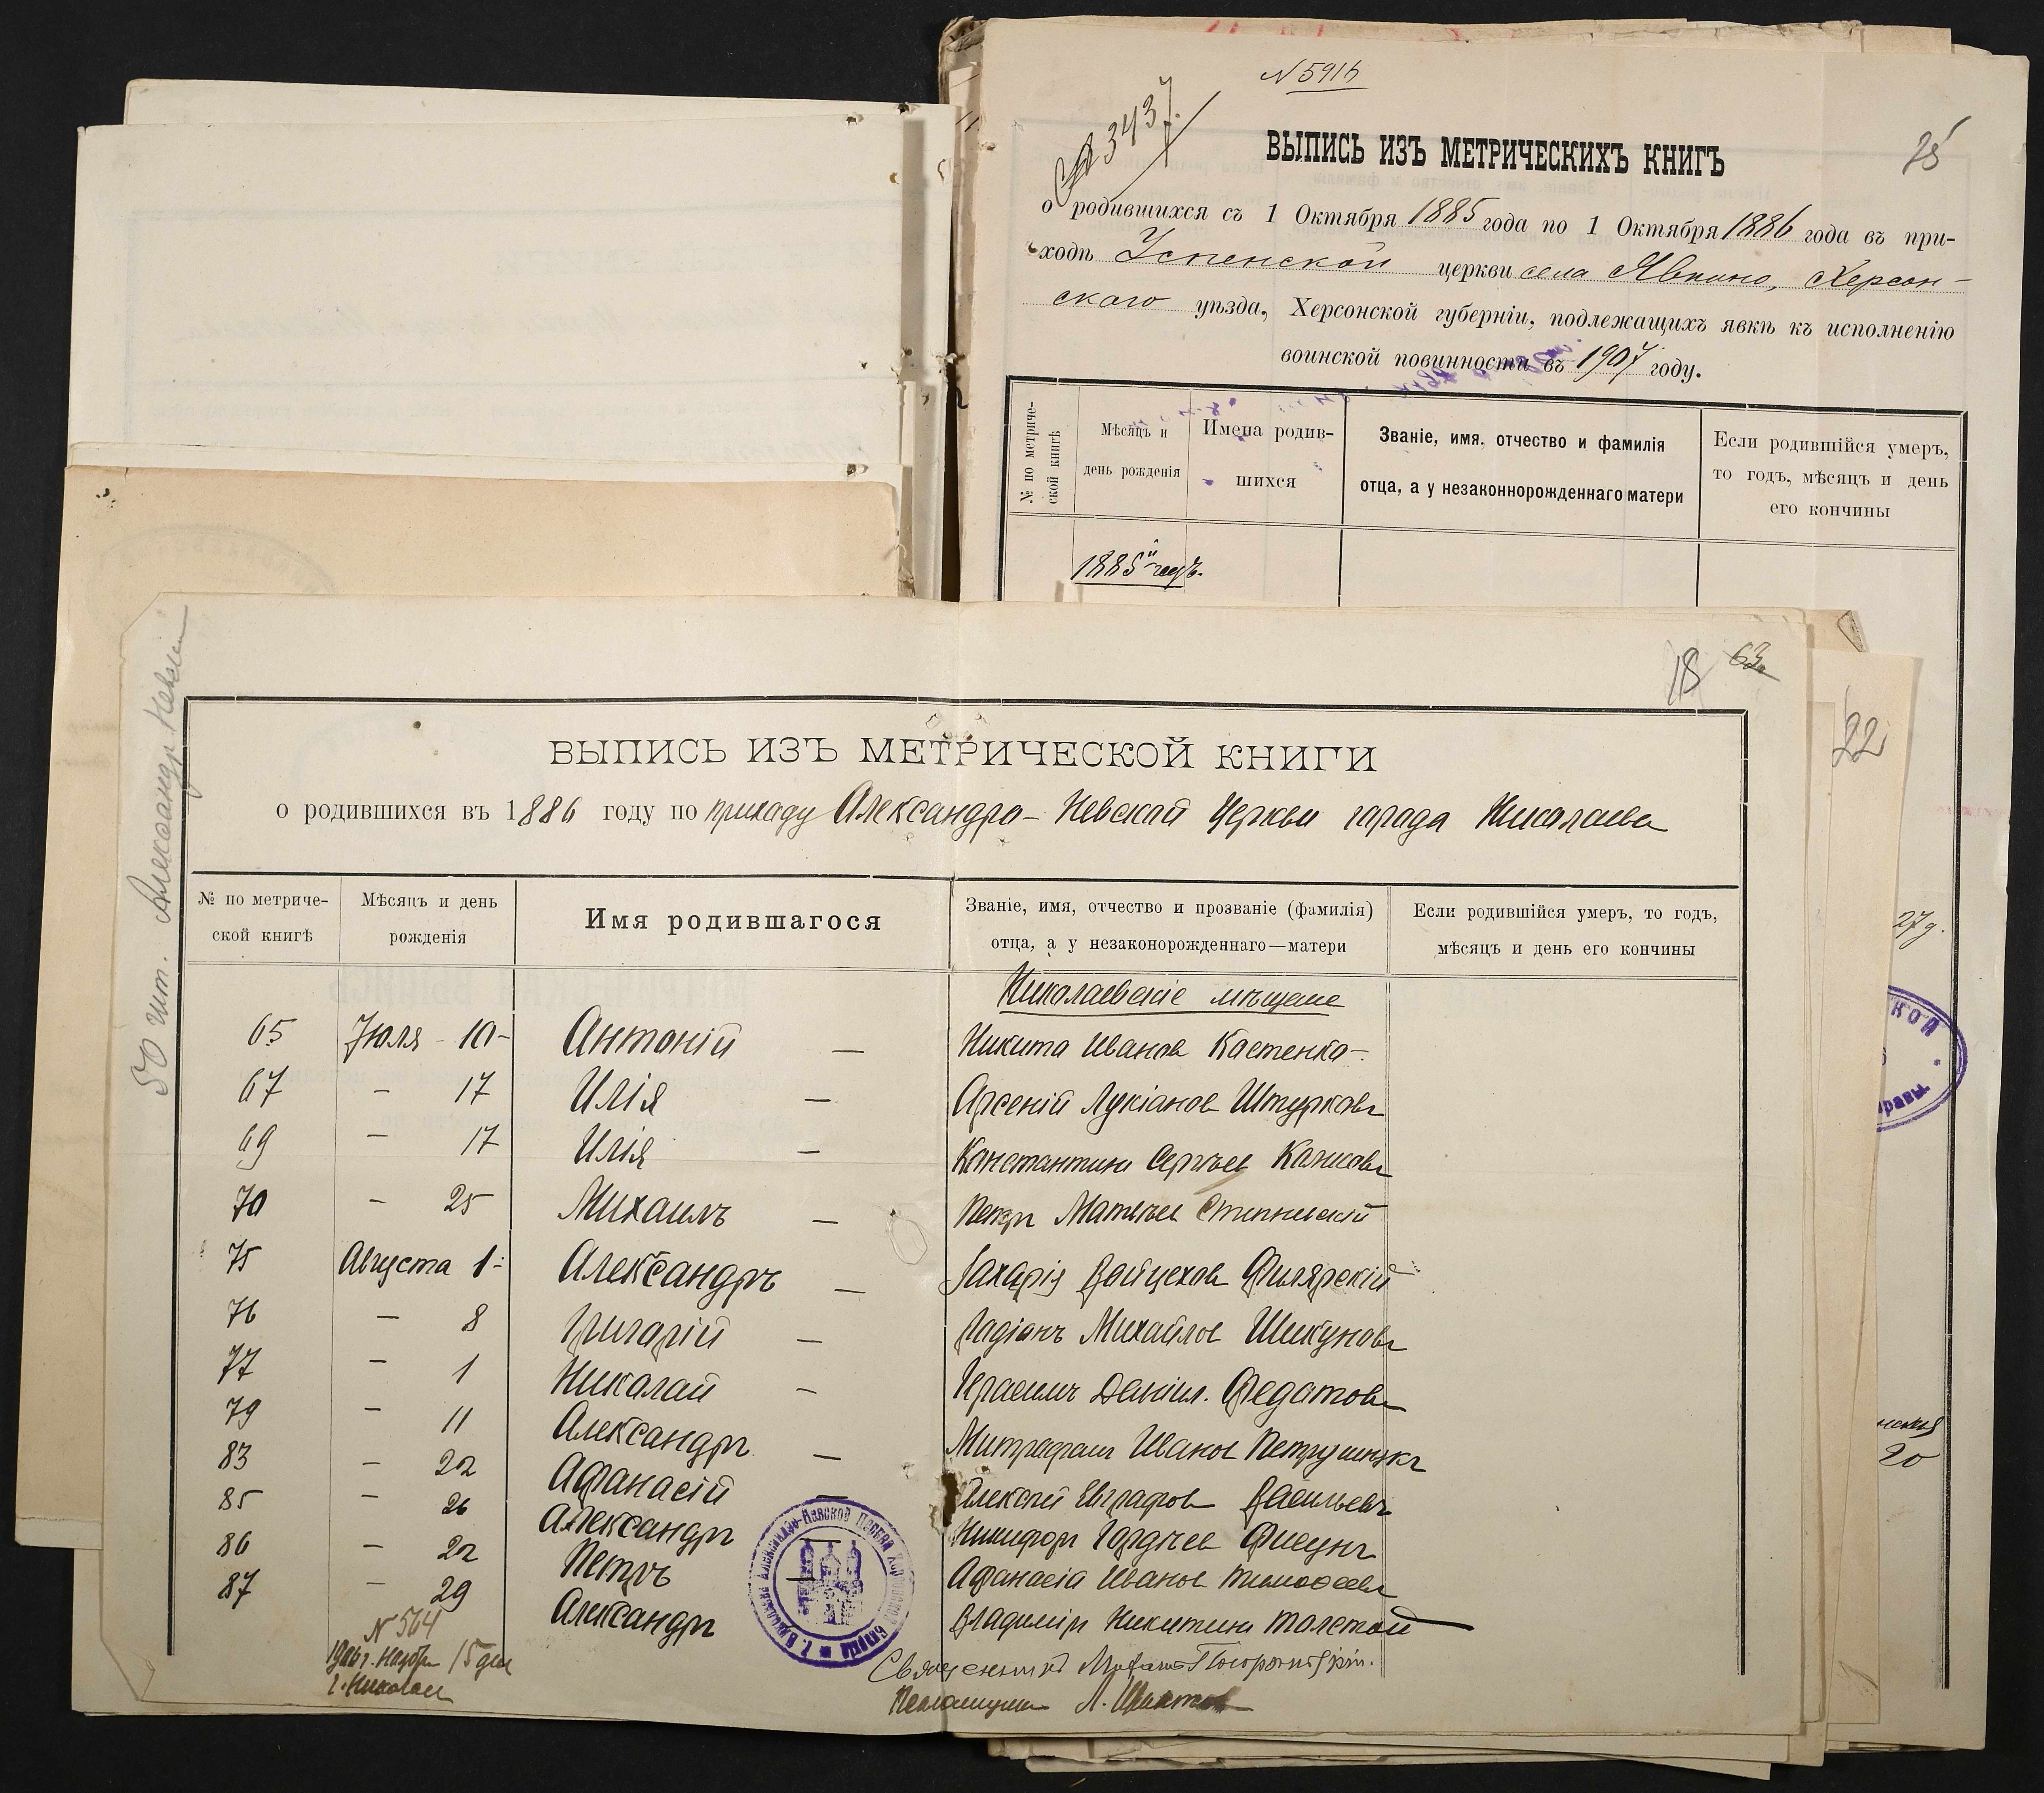 N 5916
3437.
ВЫПИСЬ ИЗЪ МЕТРИЧЕСКИХЪ КНИГЪ
25
о родившихся съ 1 Октября 1885 года по 1 Октября 1886 года въ при-
ходѣ Успенской церкви села Явкино, Херсон-
скаго уѣзда, Херсонской губерніи, подлежащихъ явкѣ къ исполненію
воинской повинности въ 1907 году.
№ по метриче-
ской книгѣ
Мѣсяцъ и
день рожденія
Имена родив-
шихся
Званіе, имя, отчество и фамилія
отца, а у незаконнорожденнаго матери
Если родившійся умеръ,
то годъ, мѣсяцъ и день
его кончины
1885й годъ.
18 63
22
27 д.
КОЙ
равы
20
50 шт. Александр Невск
ВЫПИСЬ ИЗЪ МЕТРИЧЕСКОЙ КНИГИ
о родившихся въ 1886 году по приходу Александро-Невской Церкви города Николаева
№ по метриче-
ской книгѣ
Мѣсяцъ и день
рожденія
Имя родившагося
Званіе, имя, отчество и прозваніе (фамилія)
отца, а у незаконорожденнаго—матери
Если родившійся умеръ, то годъ,
мѣсяцъ и день его кончины
Николаевскіе мѣщане
65 Іюля - 10 - Антоній — Никита Иванов Костенко -.
67 — 17 Илія — Арсеній Лукіанов Штурковъ
69 — 17 Илія — Константинъ Сергѣев
70 — 25 Михаилъ — Петръ Матвѣев
75 Августа 1 Александръ — Захарія Войцехов Филярскій
76 — 8 Григорій — Родіонъ Михайлов Шикуновъ
77 — 1 Николай — Герасимъ Даніил. Федотовъ
79 — 11 Александръ — Митрофанъ Иванов Петрушнукъ
83 — 22 Афанасій — Алексѣй Евграфов Васильевъ
85 — 26 Александръ — Никифоръ Гордѣев Фисунъ
86 — 22 Петръ — Афанасія Иванов Тимофеевъ
87 — 29 Александръ Владиміръ Никитинъ Толстой
N 564
1906 г. Ноябр 15 дня
г. Николаев
Священникъ
А.